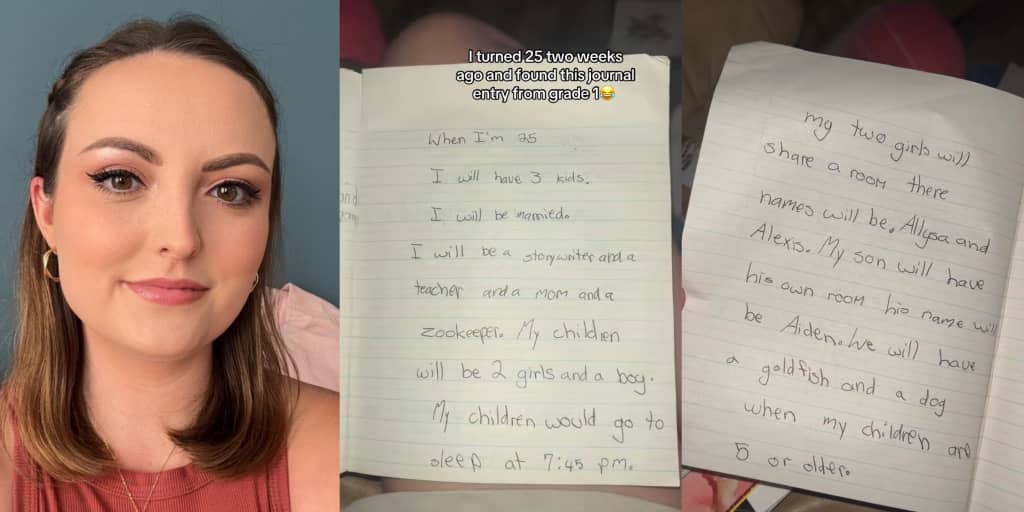 I turned 25 two weeks
ago and found this journal
entry from grade 1😂
When I'm 25
I will have 3 kids.
I will be married.
I will be a storywriter and a
teacher and a mom and a
zookeeper. My children
will be 2 girls and a boy.
My children would go to
sleep at 7:45 pm.
my two girls will
share a room there
names will be. Allysa and
Alexis. My son will have
his own room his name will
be Aiden. We will have
a goldfish and a dog
when my children are
5 or older.